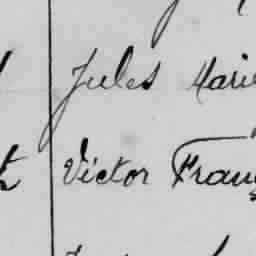 Jules Marie
Victor Franç